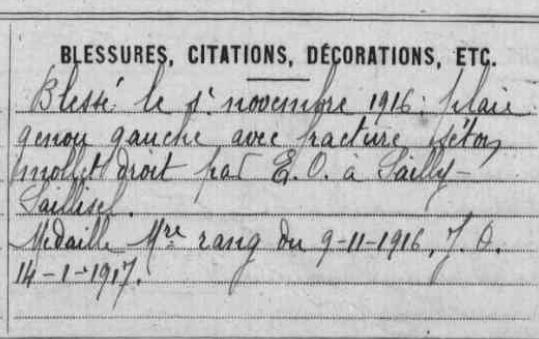 BLESSURES, CITATIONS, DÉCORATIONS, ETC.
Blessé le 1r novembre 1916: plaie
genou gauche avec fracture, séton
mollet droit par E.O. à Sailly-
Saillisel.
Médaille Mre rang du 9-11-1916, J.O.
14-1-1917.